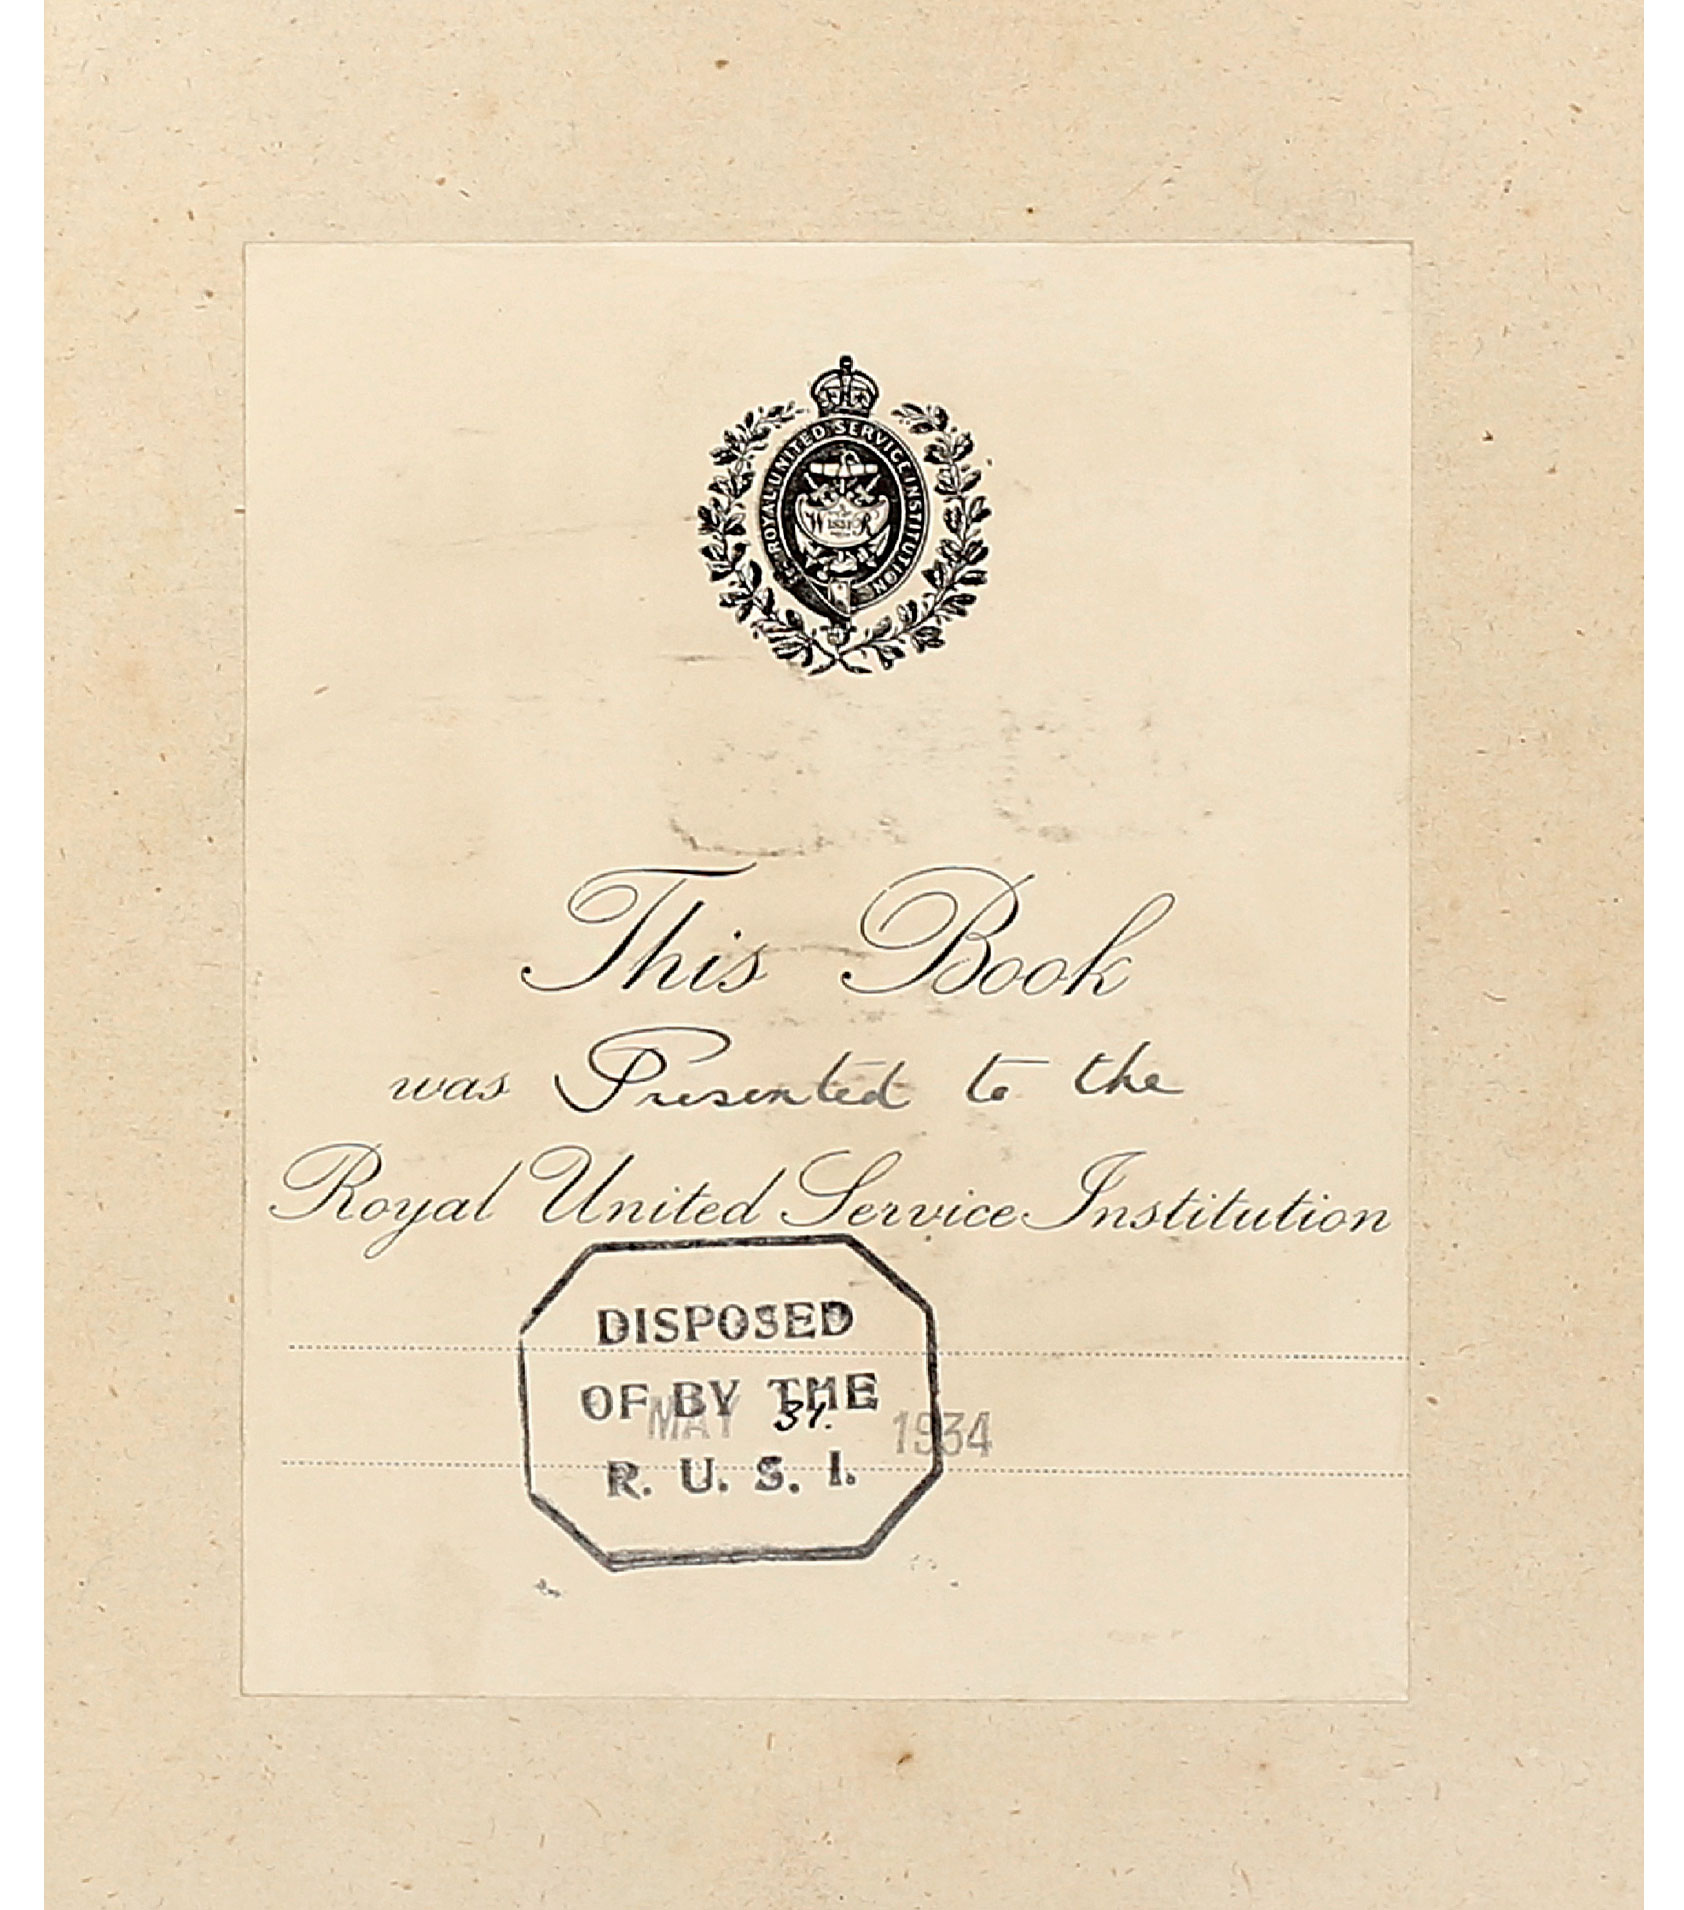 ROYAL UNITED SERVICE INSTITUTION
This Book
was Presented to the
Royal United Service Institution
DISPOSED
OF BY THE
MAY 31. 1934
R. U. S. I.